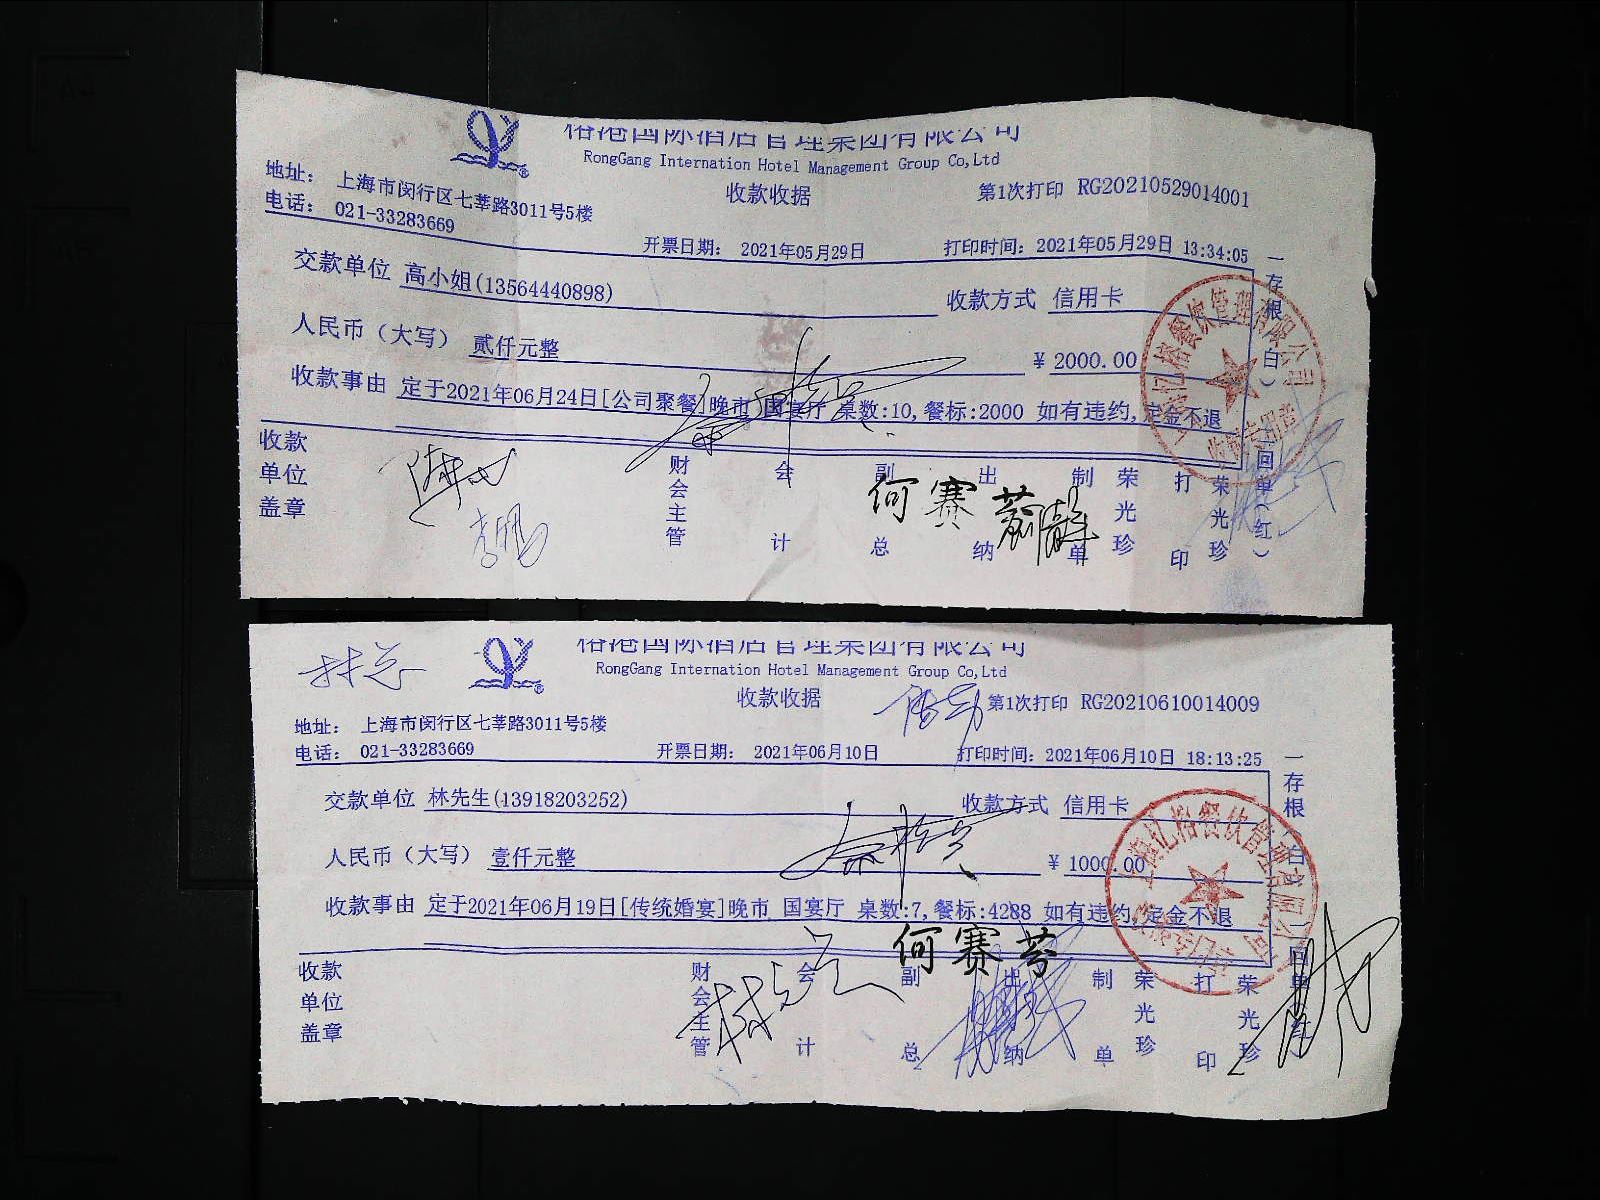 榕港国际酒店管理集团有限公司
RongGang Internation Hotel Management Group Co,Ltd
收款收据
第1次打印 RG20210529014001
地址： 上海市闵行区七莘路3011号5楼
电话： 021-33283669
开票日期： 2021年05月29日
打印时间：2021年05月29日 13:34:05
交款单位 高小姐(13564440898)
收款方式 信用卡
人民币（大写） 贰仟元整
¥ 2000.00
收款事由 定于2021年06月24日[公司聚餐]晚市 国宴厅 桌数:10,餐标:2000 如有违约,定金不退
收款单位盖章
财会主管
会计
副总
出纳
制单
荣光珍
打印
荣光珍
何赛芬
一存根（白）
回单（红）
榕港国际酒店管理集团有限公司
RongGang Internation Hotel Management Group Co,Ltd
收款收据
第1次打印 RG20210610014009
地址： 上海市闵行区七莘路3011号5楼
电话： 021-33283669
开票日期： 2021年06月10日
打印时间：2021年06月10日 18:13:25
交款单位 林先生(13918203252)
收款方式 信用卡
人民币（大写） 壹仟元整
¥ 1000.00
收款事由 定于2021年06月19日[传统婚宴]晚市 国宴厅 桌数:7,餐标:4288 如有违约,定金不退
收款单位盖章
财会主管
会计
副总
出纳
制单
荣光珍
打印
荣光珍
何赛芬
一存根（白）
回单（红）